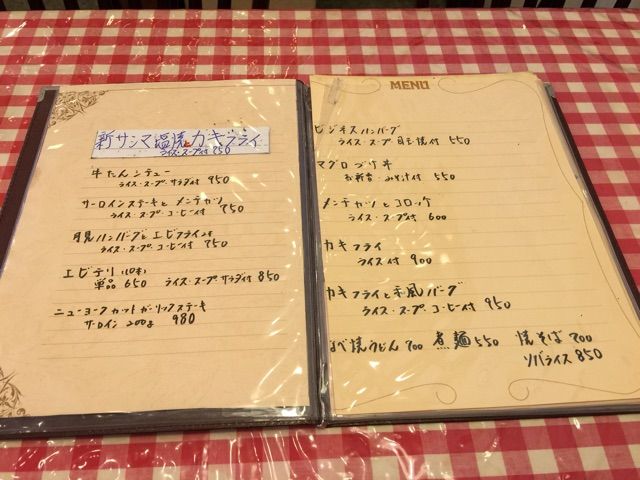 新サンマ塩焼とカキフライ
ライス・スープ付 850
牛たんシチュー
ライス・スープ・サラダ付 950
サーロインステーキと メンチカツ
ライス・スープ・コーヒー付 750
月見ハンバーグと エビフライ2本
ライス・スープ・コーヒー付 750
エビチリ (10本)
単品 650 ライス・スープ サラダ付 850
ニューヨークカットガーリックステーキ
サーロイン 200g 980
MENU
ビジネスハンバーグ
ライス・スープ 目玉焼付 550
マグロづけ丼
お新香・みそ汁付 550
メンチカツとコロッケ
ライス・スープ付 600
カキフライ
ライス付 900
カキフライと和風バーグ
ライス・スープ・コーヒー付 950
なべ焼うどん 700 煮麺 550 焼そば 700
ソバライス 850